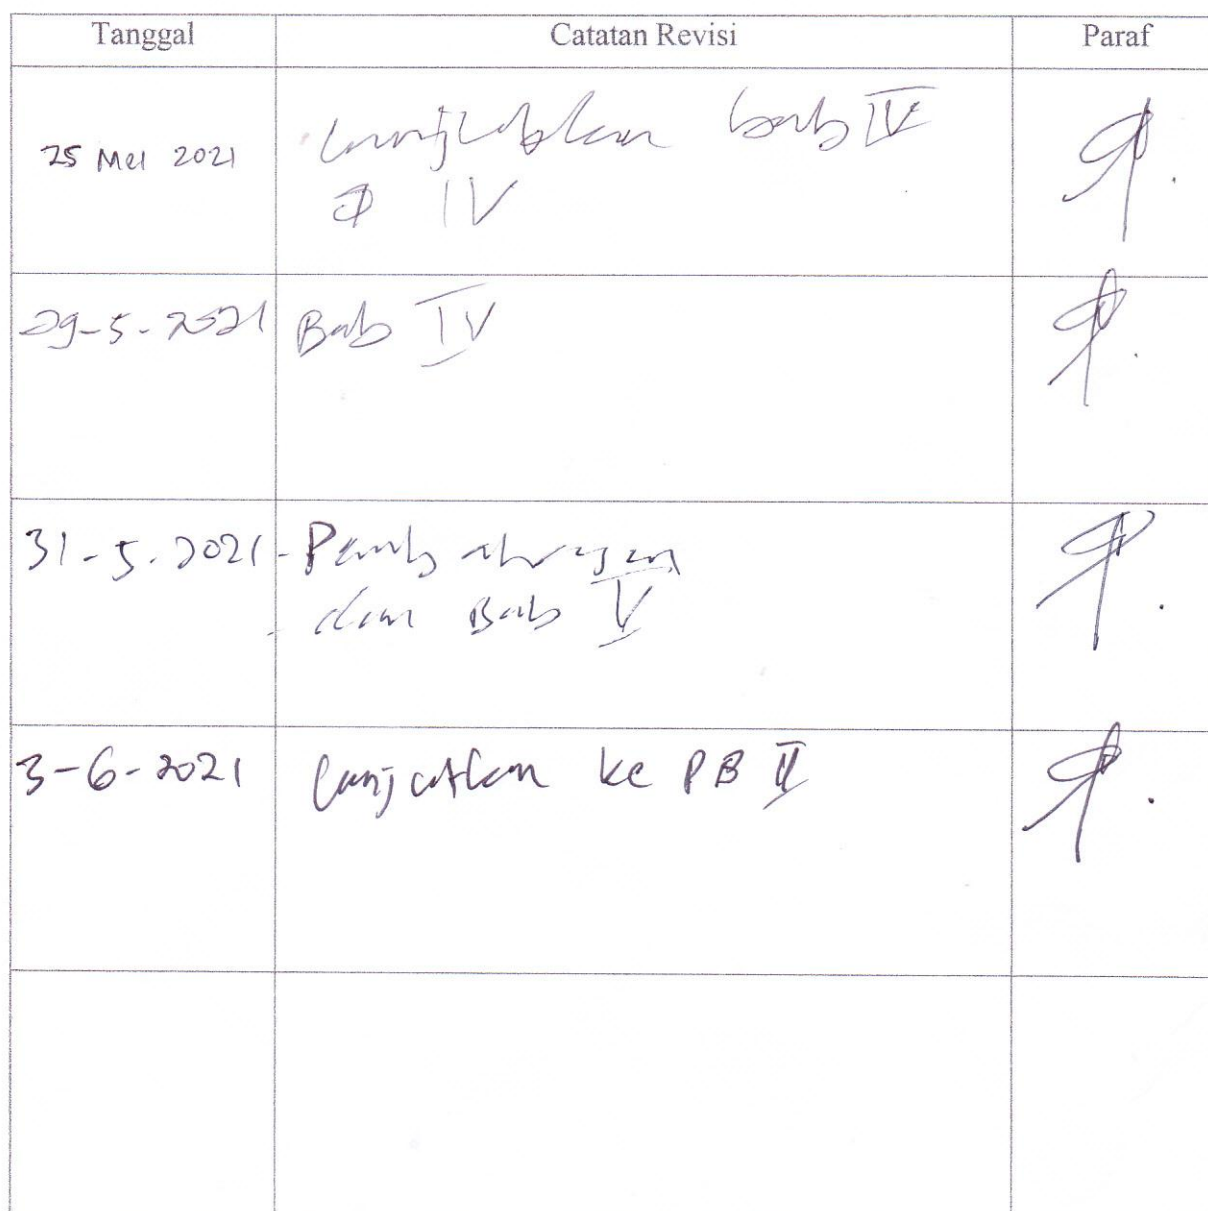 Tanggal Catatan Revisi Paraf
25 Mei 2021 Lanjutkan bab IV
IV
29-5-2021 Bab IV
31-5-2021 - Pembahasan
- dan Bab V
3-6-2021 Lanjutkan ke PB II